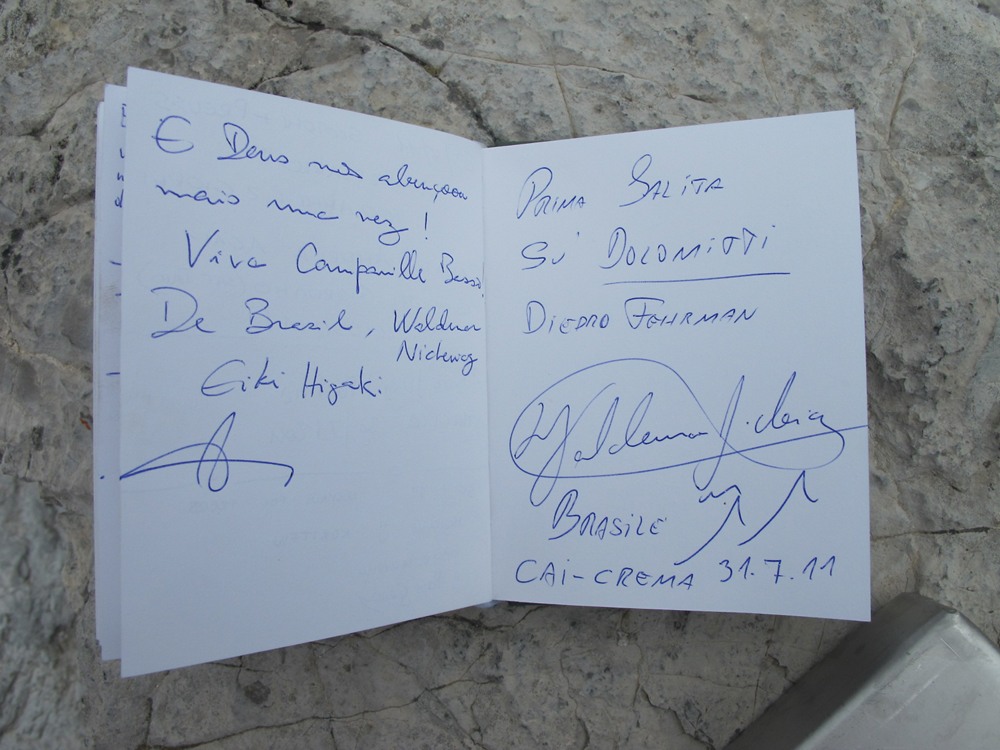 E Deus nos abençoou
mais uma vez!
Viva Campanille Basso!
De Brasil, Waldemar
Niclevicz
Eiki Higaki
PRIMA SALITA
SÙ DOLOMITTI
DIEDRO FEHRMAN
Waldemar Niclevicz
BRASILE
CAI-CREMA 31.7.11